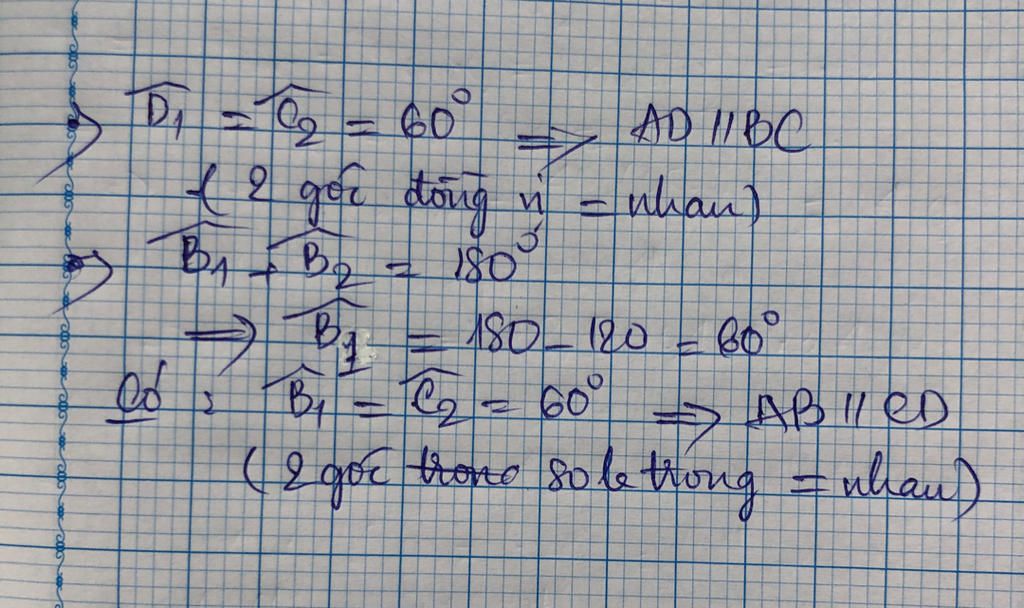 D̂1 = Ĉ2 = 60° => AD // BC
( 2 góc đồng vị = nhau )
B̂1 + B̂2 = 180°
=> B̂1 = 180 - 120 = 60°
Có : B̂1 = Ĉ2 = 60° => AB // CD
( 2 góc so le trong = nhau )